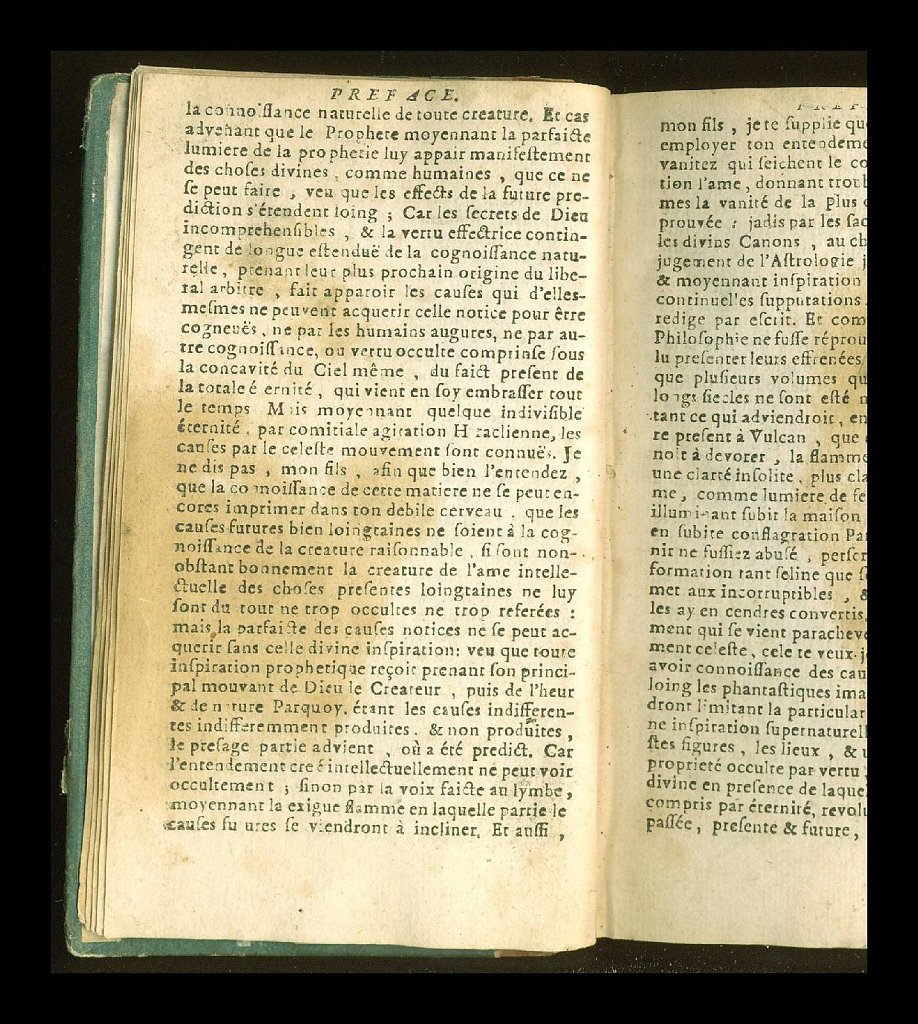 PREFACE.
la connoissance naturelle de toute creature. Et cas
advenant que le Prophete moyennant la parfaicte
lumiere de la prophetie luy appair manifestement
des choses divines, comme humaines, que ce ne
se peut faire, veu que les effects de la future pre-
diction s'étendent loing; Car les secrets de Dieu
incomprehensibles, & la vertu effectrice contin-
gent de longue estenduë de la cognoissance natu-
relle, prenant leur plus prochain origine du libe-
ral arbitre, fait apparoir les causes qui d'elles-
mesmes ne peuvent acquerir celle notice pour être
cogneuës, ne par les humains augures, ne par au-
tre cognoissance, ou vertu occulte comprinse sous
la concavité du Ciel même, du faict present de
la totale é ernité, qui vient en soy embrasser tout
le temps Mais moyennant quelque indivisible
éternité, par comitiale agitation H raclienne, les
causes par le celeste mouvement sont connuës. Je
ne dis pas, mon fils, afin que bien l'entendez,
que la connoissance de cette matiere ne se peut en-
cores imprimer dans ton debile cerveau, que les
causes futures bien loingtaines ne soient à la cog-
noissance de la creature raisonnable, si sont non-
obstant bonnement la creature de l'ame intelle-
ctuelle des choses presentes loingtaines ne luy
sont du tout ne trop occultes ne trop referées:
mais la parfaicte des causes notices ne se peut ac-
querir sans celle divine inspiration: veu que toute
inspiration prophetique reçoit prenant son princi-
pal mouvant de Dieu le Createur, puis de l'heur
& de nature Parquoy, étant les causes indifferen-
tes indifferemment produites, & non produites,
le presage partie advient, où a été predict. Car
l'entendement creé intellectuellement ne peut voir
occultement; sinon par la voix faicte au lymbe,
moyennant la exigue flamme en laquelle partie le
causes fu ures se viendront à incliner. Et aussi,
mon fils, je te supplie qu
employer ton entendeme
vanitez qui seichent le co
tion l'ame, donnant trou
mes la vanité de la plus
prouvée: jadis par les sac
les divins Canons, au ch
jugement de l'Astrologie j
& moyennant inspiration
continuelles supputations,
redige par escrit. Et com
Philosophie ne fusse réprou
lu presenter leurs effrenées
que plusieurs volumes qu
longs siecles ne sont esté
tant ce qui adviendroit, en
re present à Vulcan, que
noit à devorer, la flamme
une clarté insolite, plus cla
me, comme lumiere de fe
illuminant subit la maison
en subite conflagration Pa
nir ne fussiez abusé, perscr
formation tant seline que s
met aux incorruptibles, &
les ay en cendres convertis,
ment qui se vient parachev
ment celeste, cele te veux j
avoir connoissance des cau
loing les phantastiques ima
dront limitant la particular
ne inspiration supernaturel
stes figures, les lieux, &
proprieté occulte par vertu
divine en presence de laque
compris par éternité, revolu
passée, presente & future,